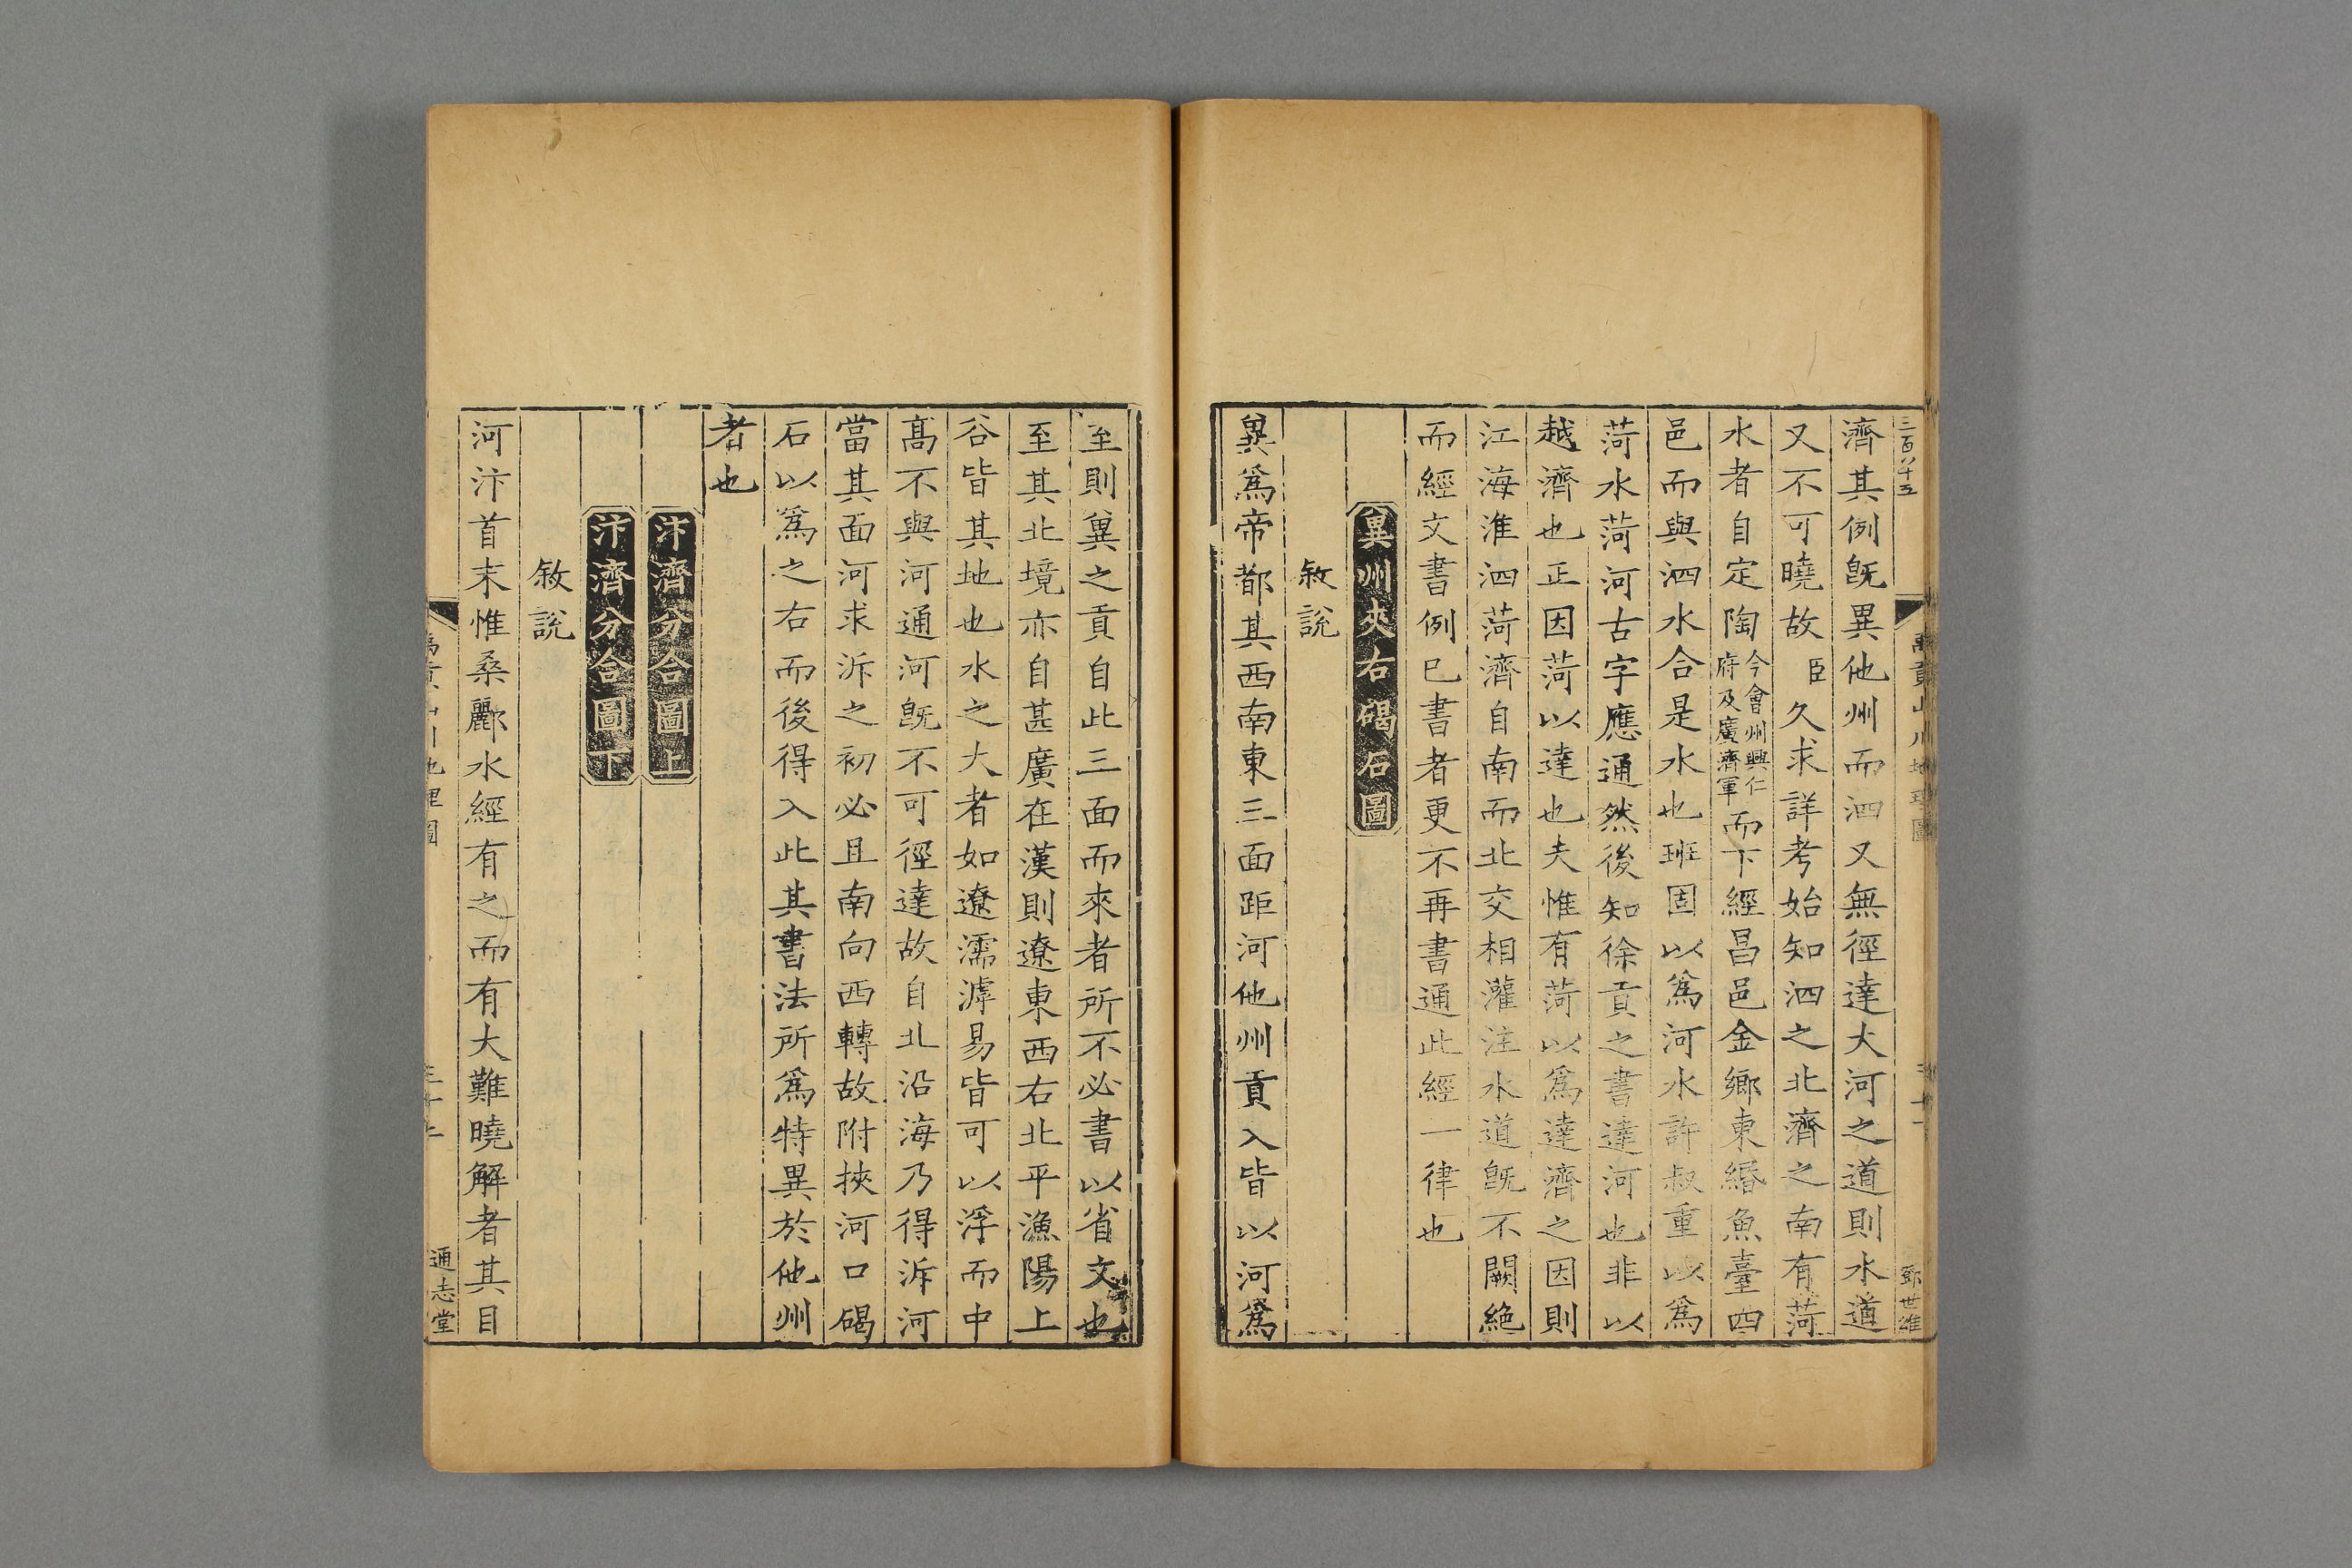 三百八十五
鄧世雄
濟其例旣異他州而泗又無徑達大河之道則水道
又不可曉故臣久求詳考始知泗之北濟之南有菏
水者自定陶今會州興仁府及廣濟軍而下經昌邑金鄉東緡魚臺四
邑而與泗水合是水也班固以爲河水許叔重以爲
菏水菏河古字應通然後知徐貢之書達河也非以
越濟也正因菏以達也夫惟有菏以爲達濟之因則
江海淮泗菏濟自南而北交相灌注水道旣不闕絶
而經文書例已書者更不再書通此經一律也
兾州夾右碣石圖
敘說
兾爲帝都其西南東三面距河他州貢入皆以河爲
至則兾之貢自此三面而來者所不必書以省文也
至其北境亦自甚廣在漢則遼東西右北平漁陽上
谷皆其地也水之大者如遼濡滹易皆可以浮而中
髙不與河通河旣不可徑達故自北沿海乃得泝河
當其面河求泝之初必且南向西轉故附挾河口碣
石以爲之右而後得入此其書法所爲特異於他州
者也
汴濟分合圖上
汴濟分合圖下
敘說
河汴首末惟桑酈水經有之而有大難曉解者其目
通志堂